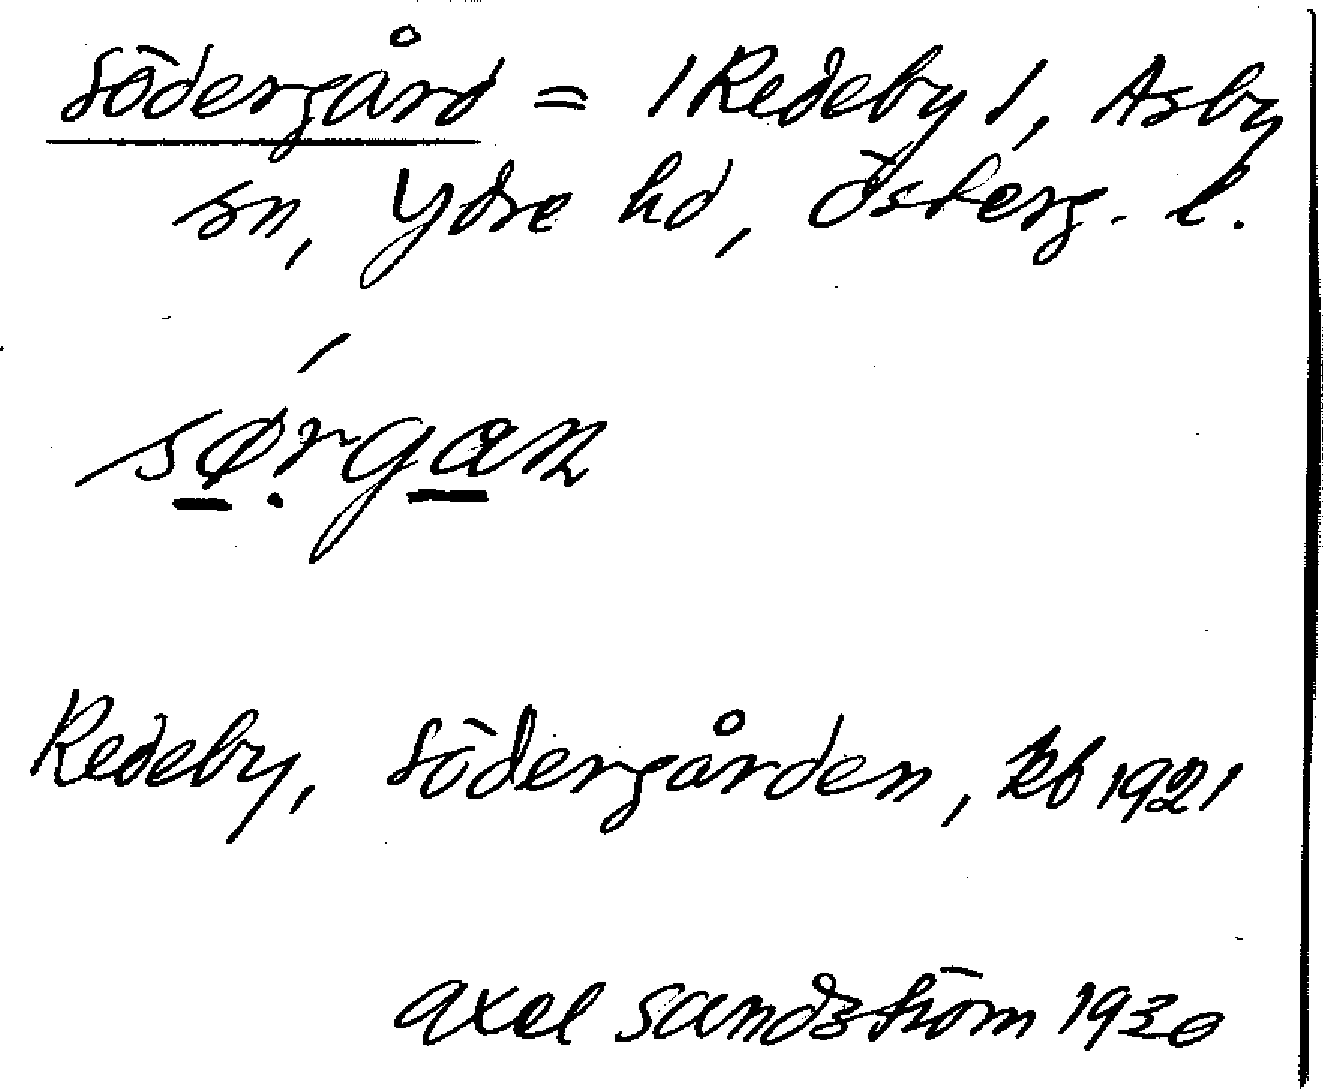 Södergård = /Redeby/, Asby
sn, Ydre hd, Österg. l.
sǿ̱ṛga̱n
Redeby, Södergården, kb 1921
Axel Sandström 1930